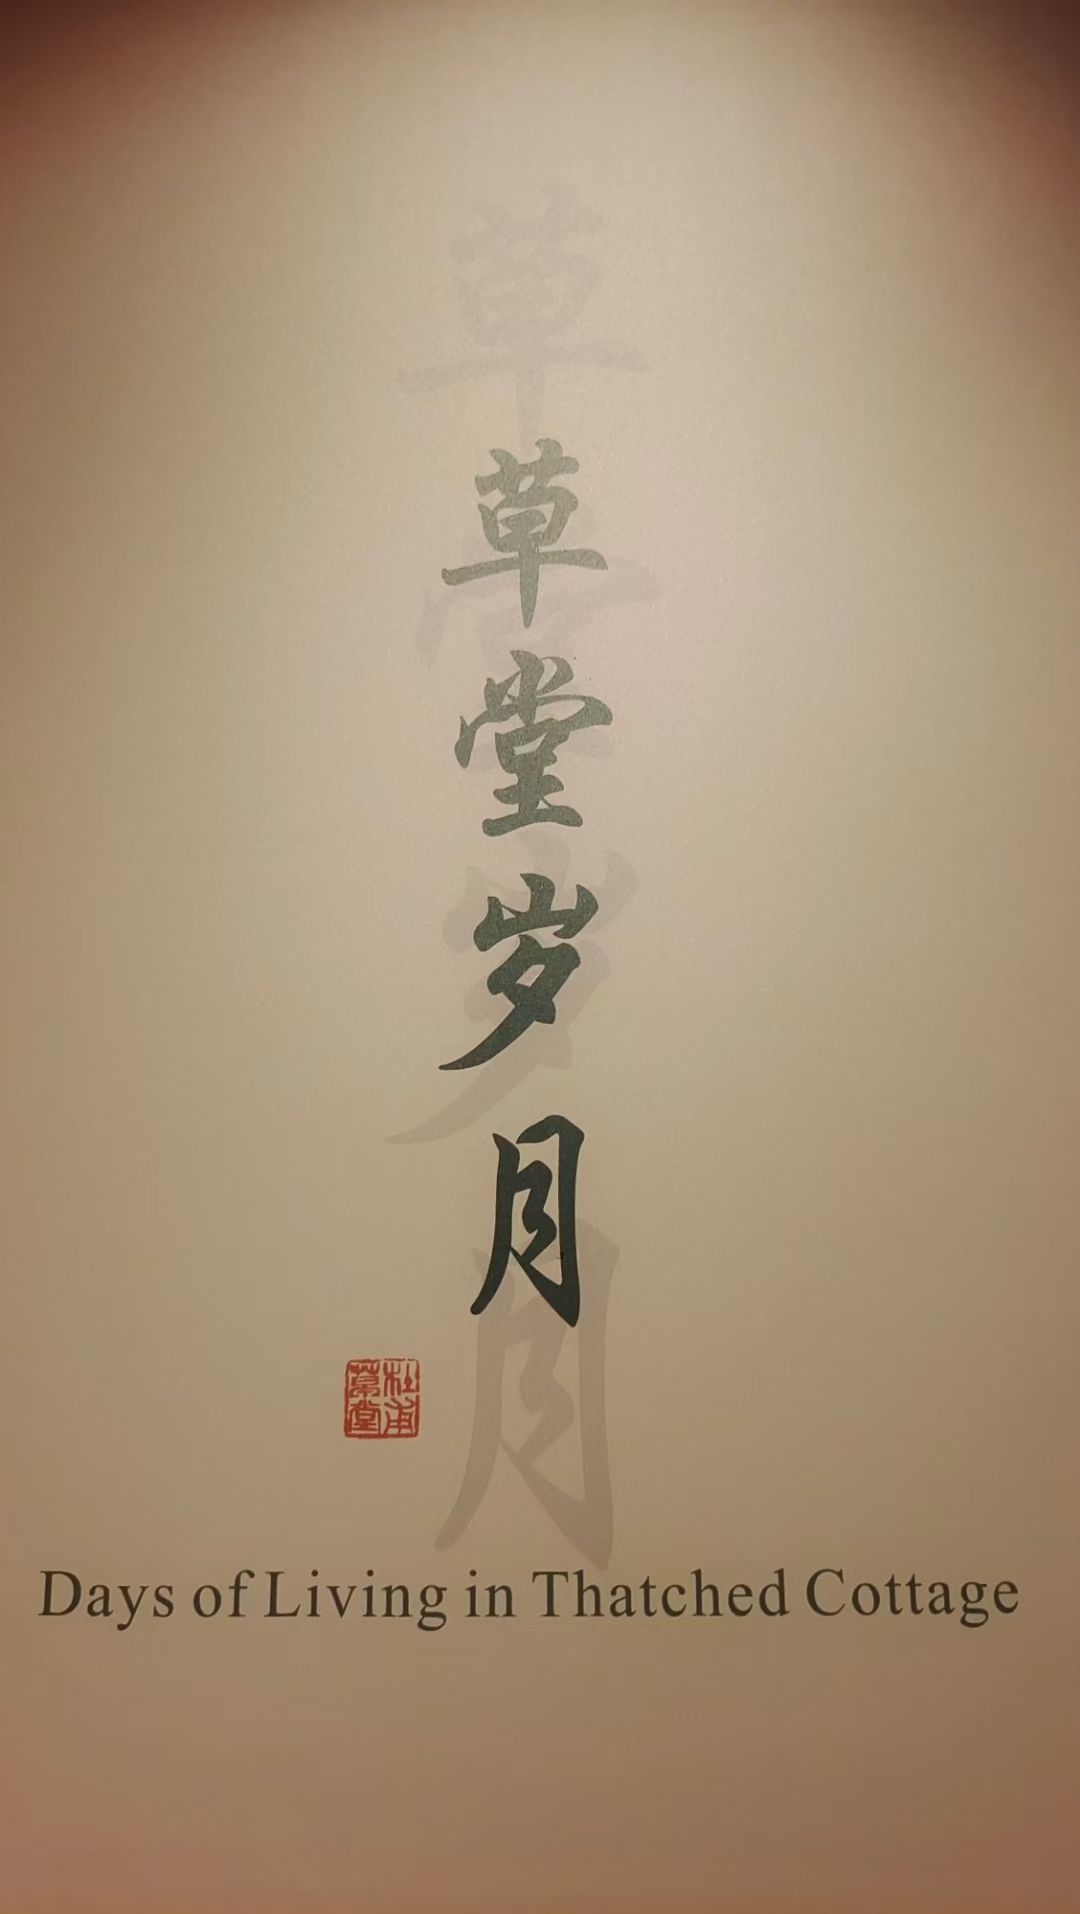 草堂岁月
杜甫
草堂
Days of Living in Thatched Cottage